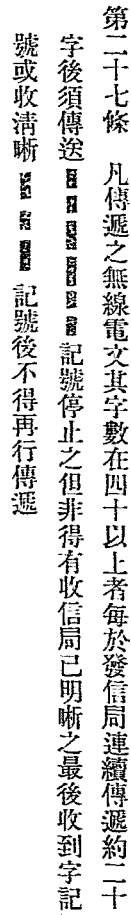 第二十七條　凡傳遞之無線電文其字數在四十以上者每於發信局連續傳遞約二十
字後須傳送記號停止之但非得有收信局已明晰之最後收到字記
號或收淸晰記號後不得再行傳遞